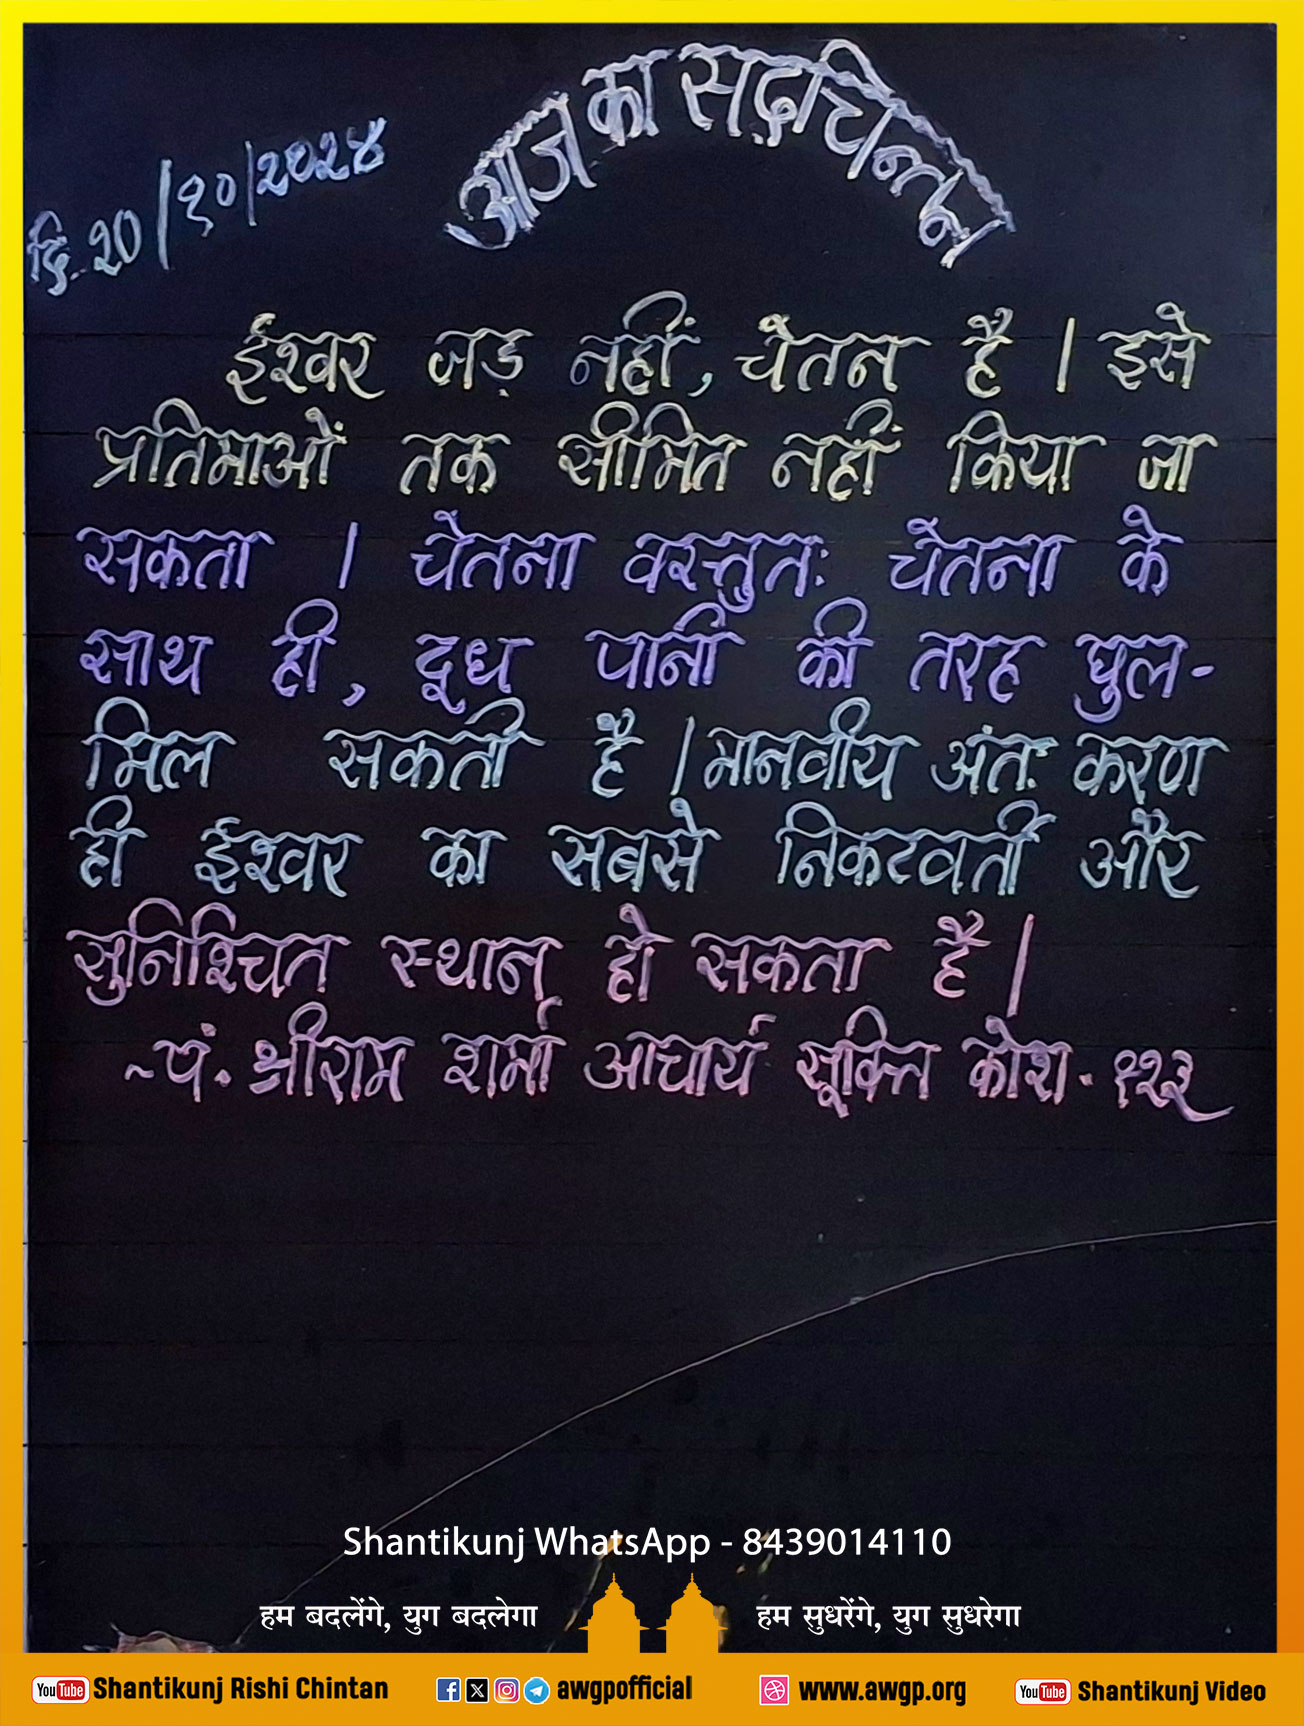 आज का सद्चिन्तन
दि. २०/१०/२०२४
ईश्वर जड़ नहीं, चेतन है । इसे
प्रतिमाओं तक सीमित नहीं किया जा
सकता । चेतना वस्तुतः चेतना के
साथ ही, दूध पानी की तरह घुल-
मिल सकती है । मानवीय अंतः करण
ही ईश्वर का सबसे निकटवर्ती और
सुनिश्चित स्थान हो सकता है ।
~पं. श्रीराम शर्मा आचार्य सूक्ति कोश. १२३
Shantikunj WhatsApp - 8439014110
हम बदलेंगे, युग बदलेगा हम सुधरेंगे, युग सुधरेगा
YouTube Shantikunj Rishi Chintan awgpofficial www.awgp.org YouTube Shantikunj Video